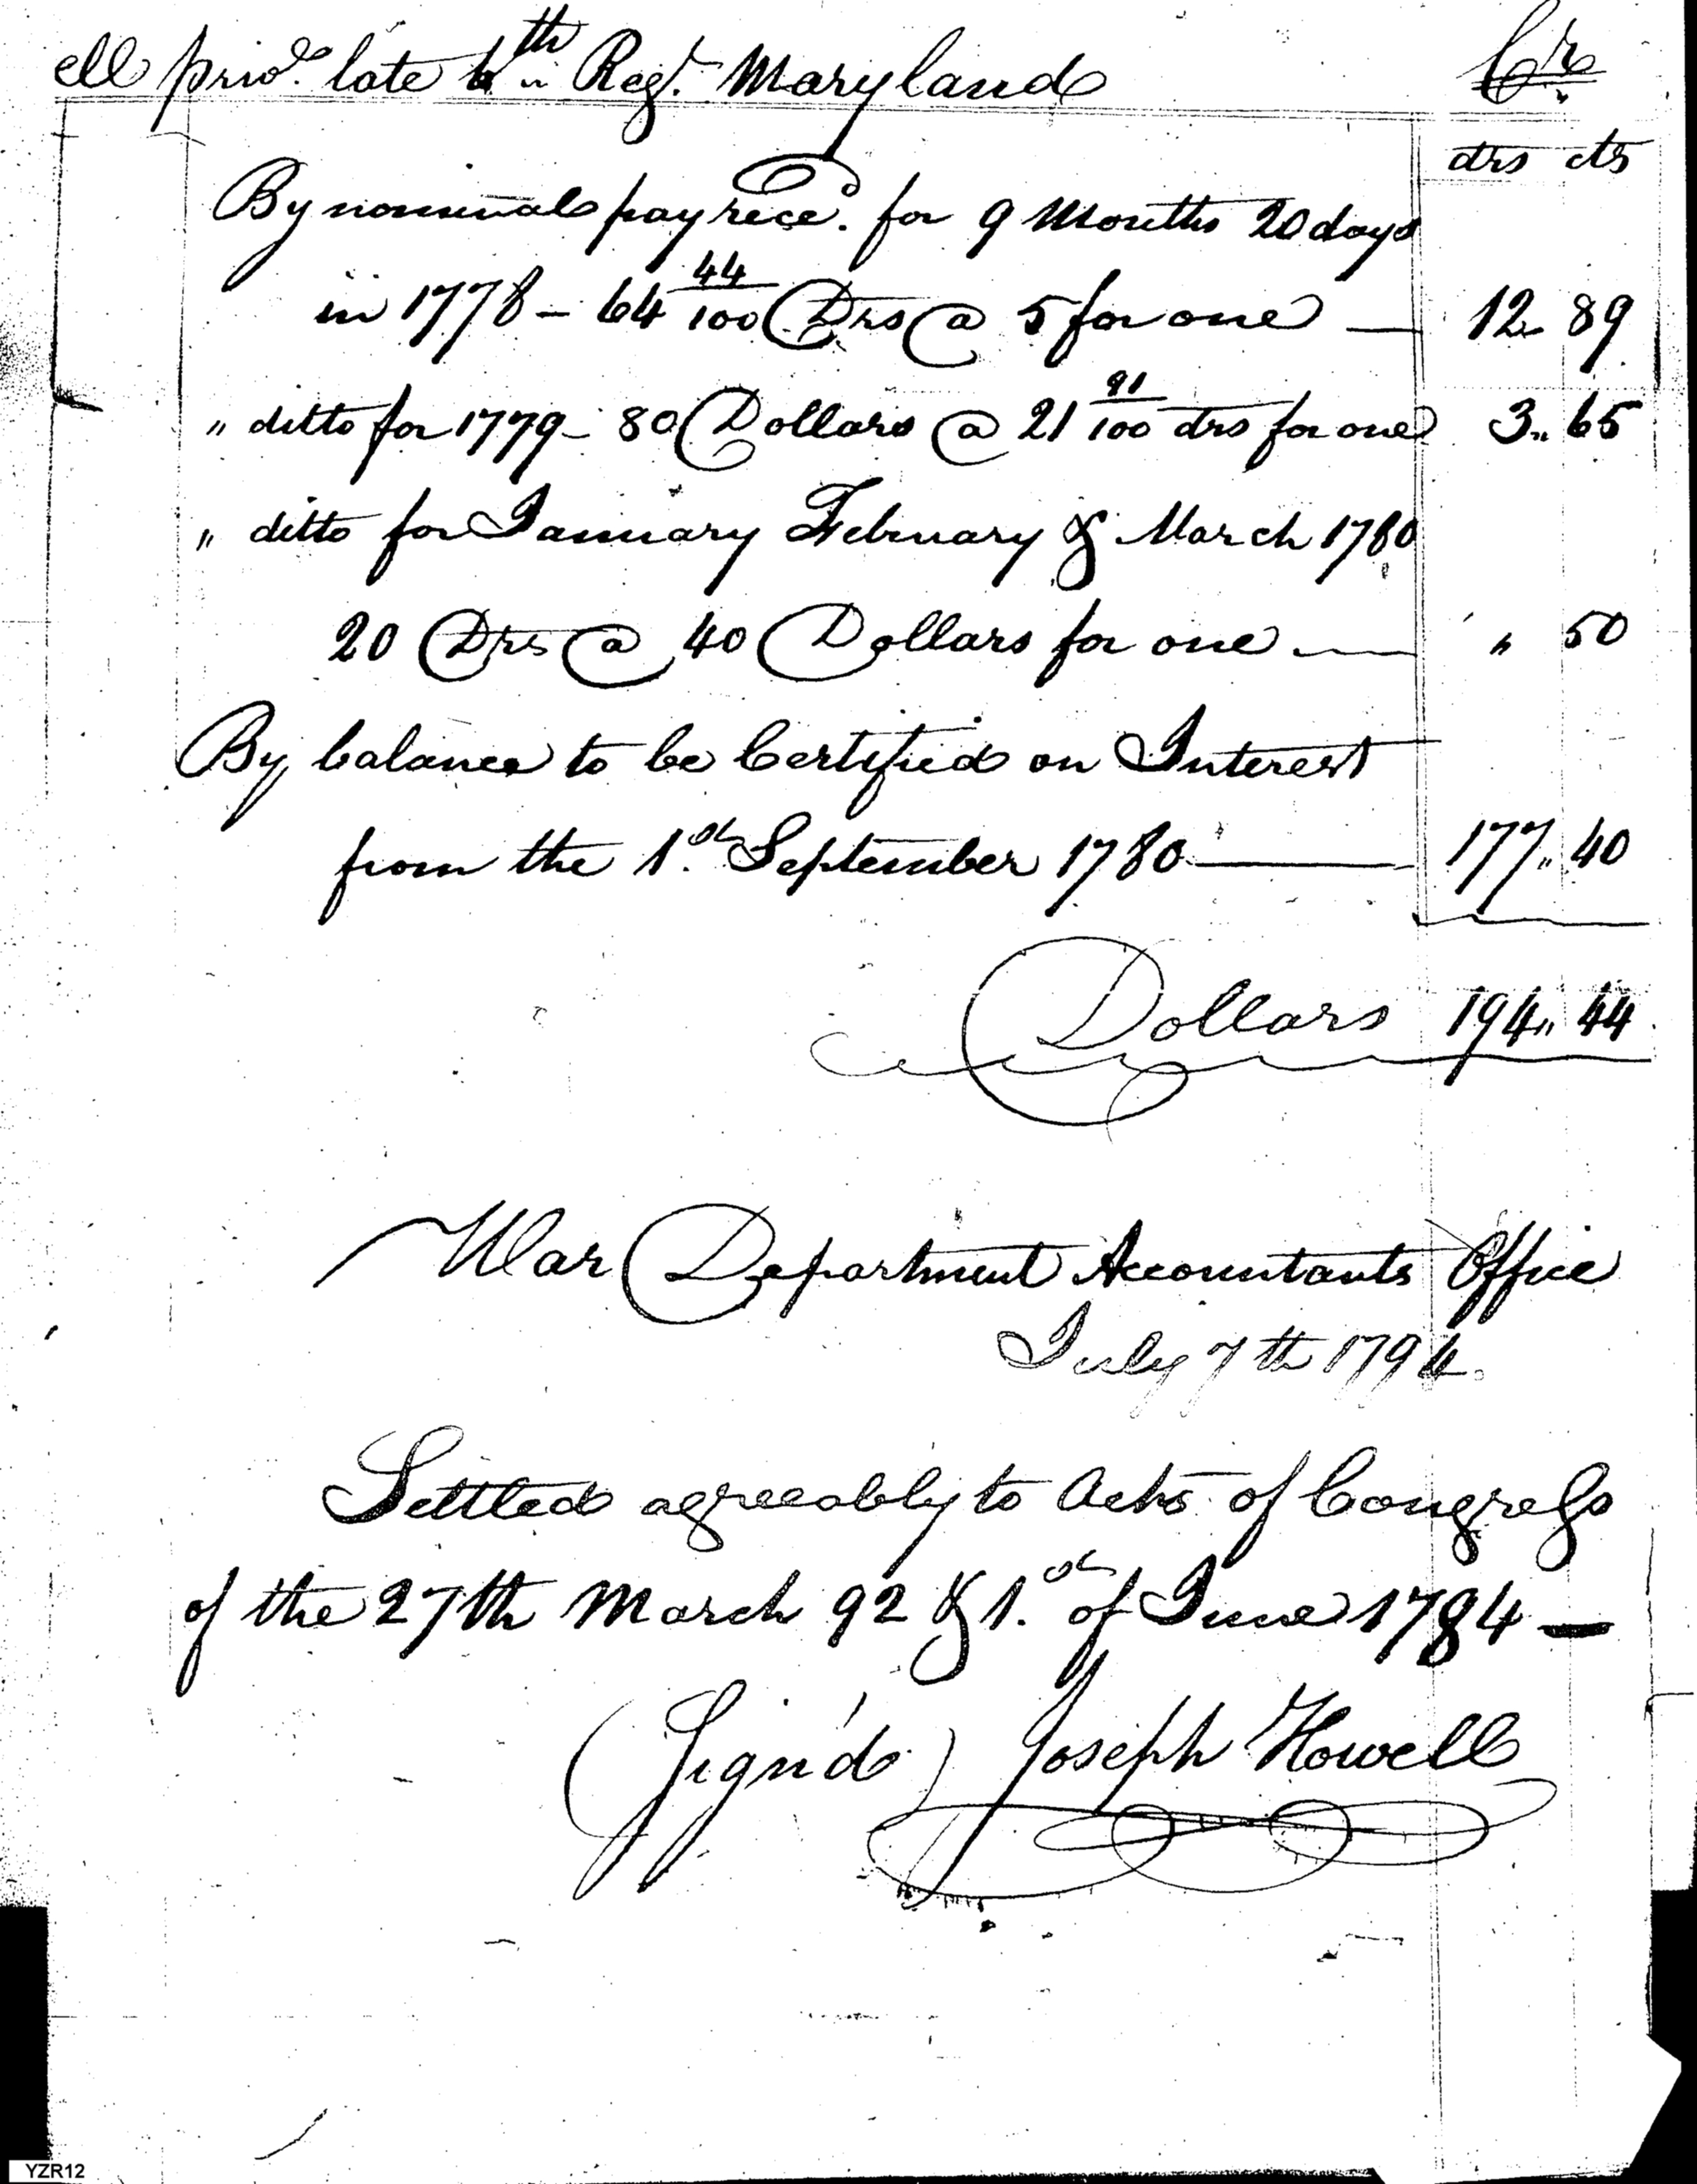 ell priv.e late 6th Reg.t Maryland Cr
drs cts
By nominal pay rece.d for 9 Months 20 days
in 1778 – 64 44/100 Drs @ 5 for one — 12 89
" ditto for 1779 – 80 Dollars @ 21 91/100 drs for one 3 " 65
" ditto for January February & March 1780
20 Drs @ 40 Dollars for one — " 50
By balance to be Certified on Interest
from the 1.st September 1780 — 177 " 40
Dollars 194 " 44
War Department Accountants Office
July 7th 1794.
Settled agreeably to Acts of Congress
of the 27th March 92 & 1.st of June 1784 —
(Sign'd) Joseph Howell
YZR12